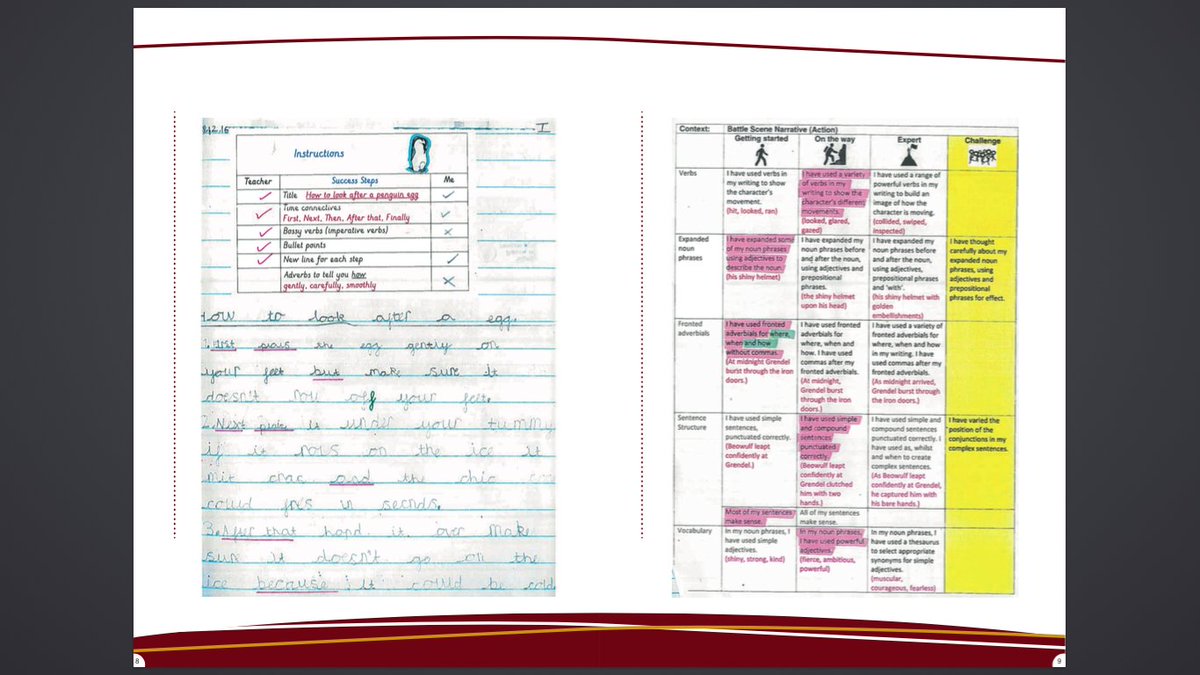 8.12.16
I
Instructions
Teacher
Success Steps
Me
Title How to look after a penguin egg
Time connectives
First, Next, Then, After that, Finally
Bossy verbs (imperative verbs)
Bullet points
New line for each step
Adverbs to tell you how
gently, carefully, smoothly
How to look after a egg.
1. First the egg gently on
your feet but make sure it
doesn't roll off your feet.
2. Next it under your tummy
if it rols on the ice it
mit crac and the chic
could in secnds.
3. After that hand it. over Make
sure it doesn't go on the
ice because it could be cold
8
Context: Battle Scene Narrative (Action)
Getting started
On the way
Expert
Challenge
Verbs
I have used verbs in
my writing to show
the character's
movement.
(hit, looked, ran)
I have used a variety
of verbs in my
writing to show the
character's different
movements.
(looked, glared,
gazed)
I have used a range of
powerful verbs in my
writing to build an
image of how the
character is moving.
(collided, swiped,
inspected)
Expanded
noun
phrases
I have expanded some
of my noun phrases
using adjectives to
describe the noun.
(his shiny helmet)
I have expanded my
noun phrases before
and after the noun,
using adjectives and
prepositional
phrases.
(the shiny helmet
upon his head)
I have expanded my
noun phrases before
and after the noun,
using adjectives,
prepositional phrases
and 'with'.
(his shiny helmet with
golden
embellishments)
I have thought
carefully about my
expanded noun
phrases, using
adjectives and
prepositional
phrases for effect.
Fronted
adverbials
I have used fronted
adverbials for where,
when and how
without commas.
(At midnight Grendel
burst through the iron
doors.)
I have used fronted
adverbials for
where, when and
how. I have used
commas after my
fronted adverbials.
(At midnight,
Grendel burst
through the iron
doors.)
I have used a variety of
fronted adverbials for
where, when and how
in my writing. I have
used commas after my
fronted adverbials.
(As midnight arrived,
Grendel burst through
the iron doors.)
Sentence
Structure
I have used simple
sentences,
punctuated correctly.
(Beowulf leapt
confidently at
Grendel.)
I have used simple
and compound
sentences
punctuated
correctly.
(Beowulf leapt
confidently at
Grendel clutched
him with two
hands.)
I have used simple and
compound sentences
punctuated correctly. I
have used as, whilst
and when to create
complex sentences.
(As Beowulf leapt
confidently at Grendel,
he captured him with
his bare hands.)
I have varied the
position of the
conjunctions in my
complex sentences.
Most of my sentences
make sense.
All of my sentences
make sense.
Vocabulary
In my noun phrases, I
have used simple
adjectives.
(shiny, strong, kind)
In my noun phrases,
I have used powerful
adjectives.
(fierce, ambitious,
powerful)
In my noun phrases, I
have used a thesaurus
to select appropriate
synonyms for simple
adjectives.
(muscular,
courageous, fearless)
9